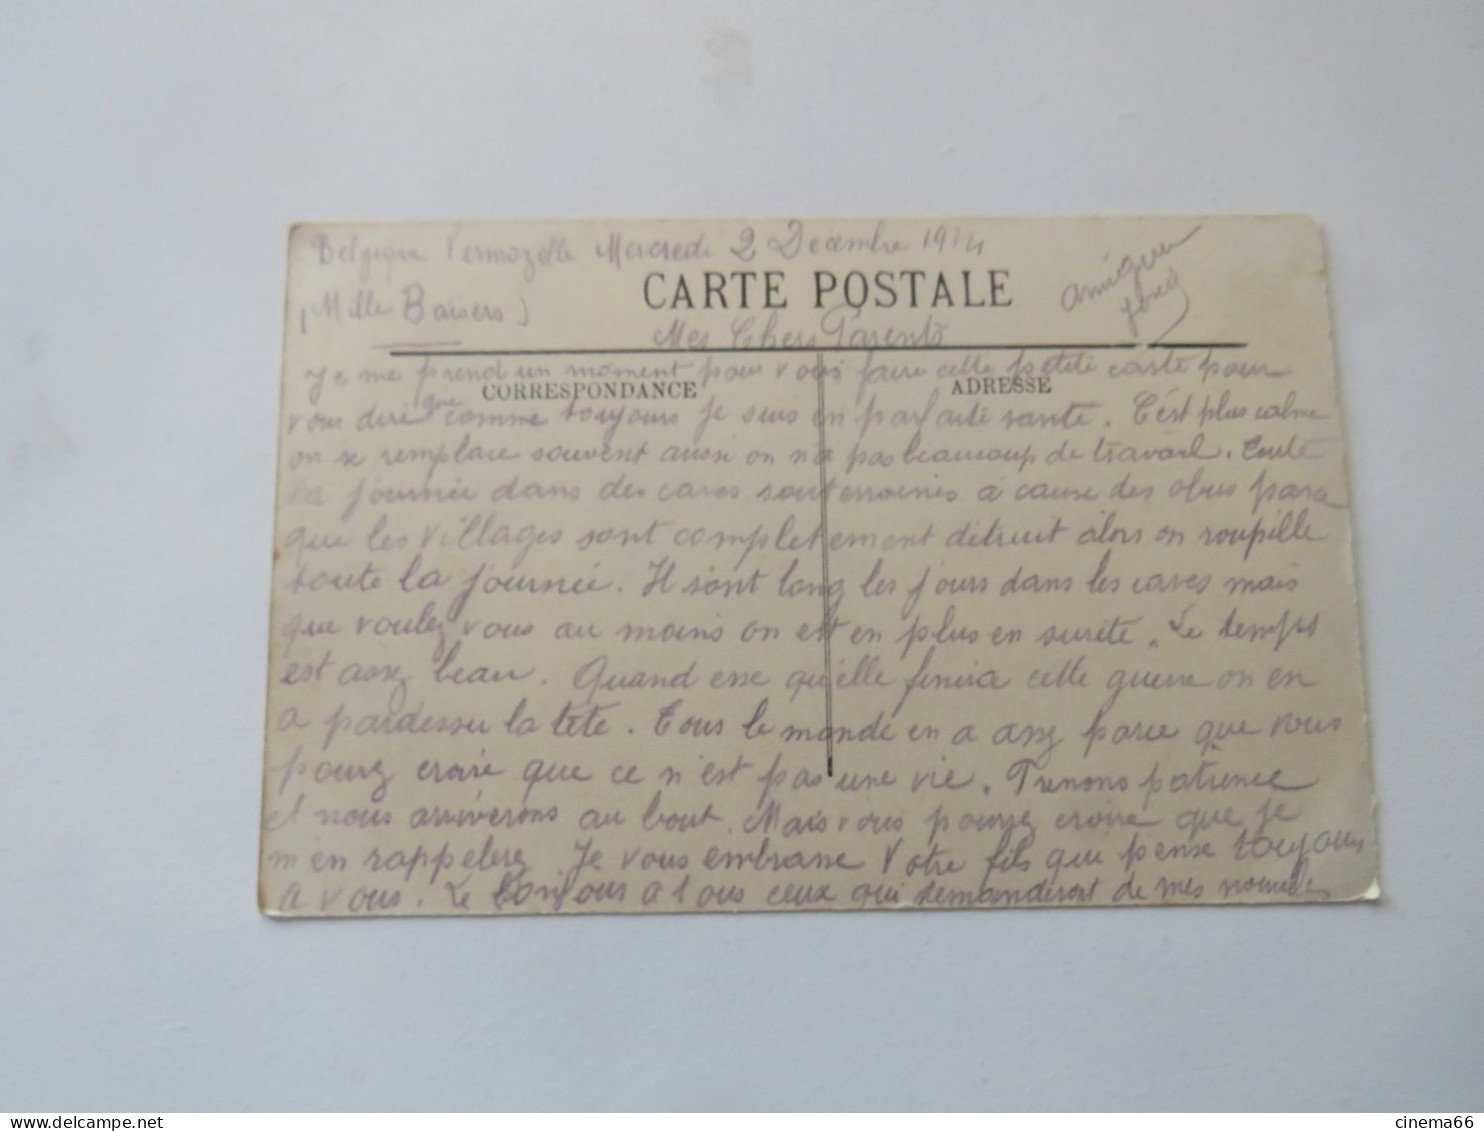 Belgique Vermozelle Mercredi 2 Décembre 1914
(Mille Baisers)
CARTE POSTALE
Mes Chers Parents
Je me prend un moment pour vous faire cette petite carte pour
CORRESPONDANCE
ADRESSE
vous dire que comme toujours je suis en parfaite santé. C'est plus calme
on se remplace souvent aussi on n'a pas beaucoup de travail. Toute
la journée dans des caves souterraines à cause des obus parce
que les villages sont completement détruit alors on roupille
toute la journée. Il sont long les jours dans les caves mais
que voulez vous au moins on est en plus en sureté. Le temps
est assez beau. Quand esse qu'elle finira cette guerre on en
a pardessu la tête. Tous le monde en a assez parce que vous
pouvez croire que ce n'est pas une vie. Prenons patience
et nous arriverons au bout. Mais vous pouvez croire que je
m'en rappelerez Je vous embrasse Votre fils que pense toujours
a vous. Le Bonjour a tous ceux qui demanderont de mes nouvelles
cinema66